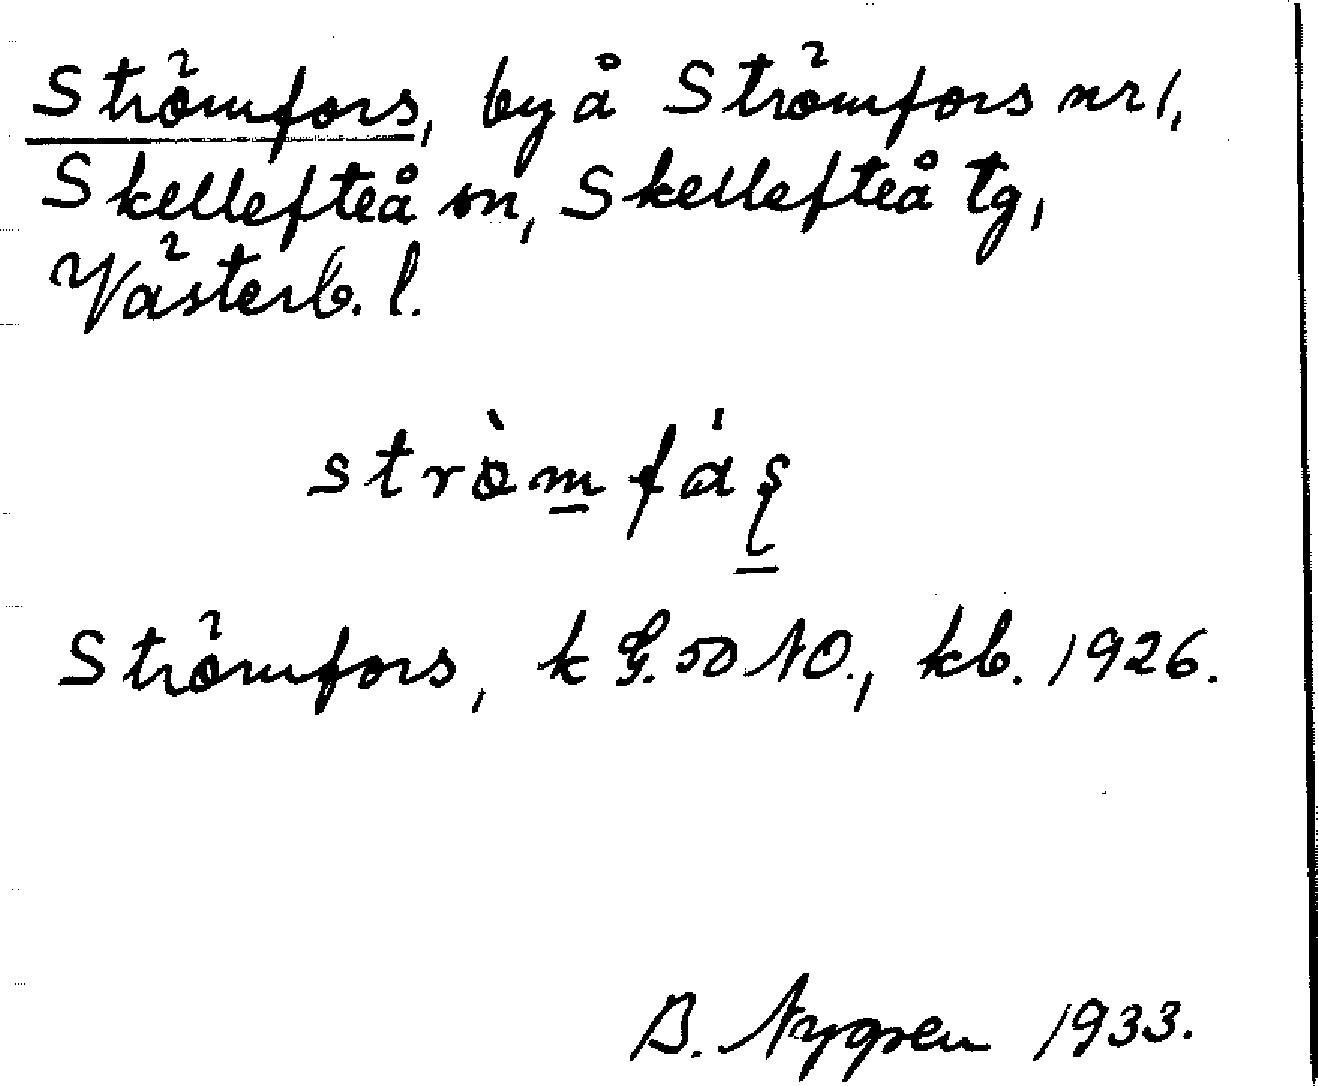 Strömfors, by å Strömfors nr 1,
Skellefteå sn, Skellefteå tg,
Västerb. l.
strö̀m̲fá̵ʂ̲
Strömfors, k G. 50 NO., kb. 1926.
B. Nygren 1933.